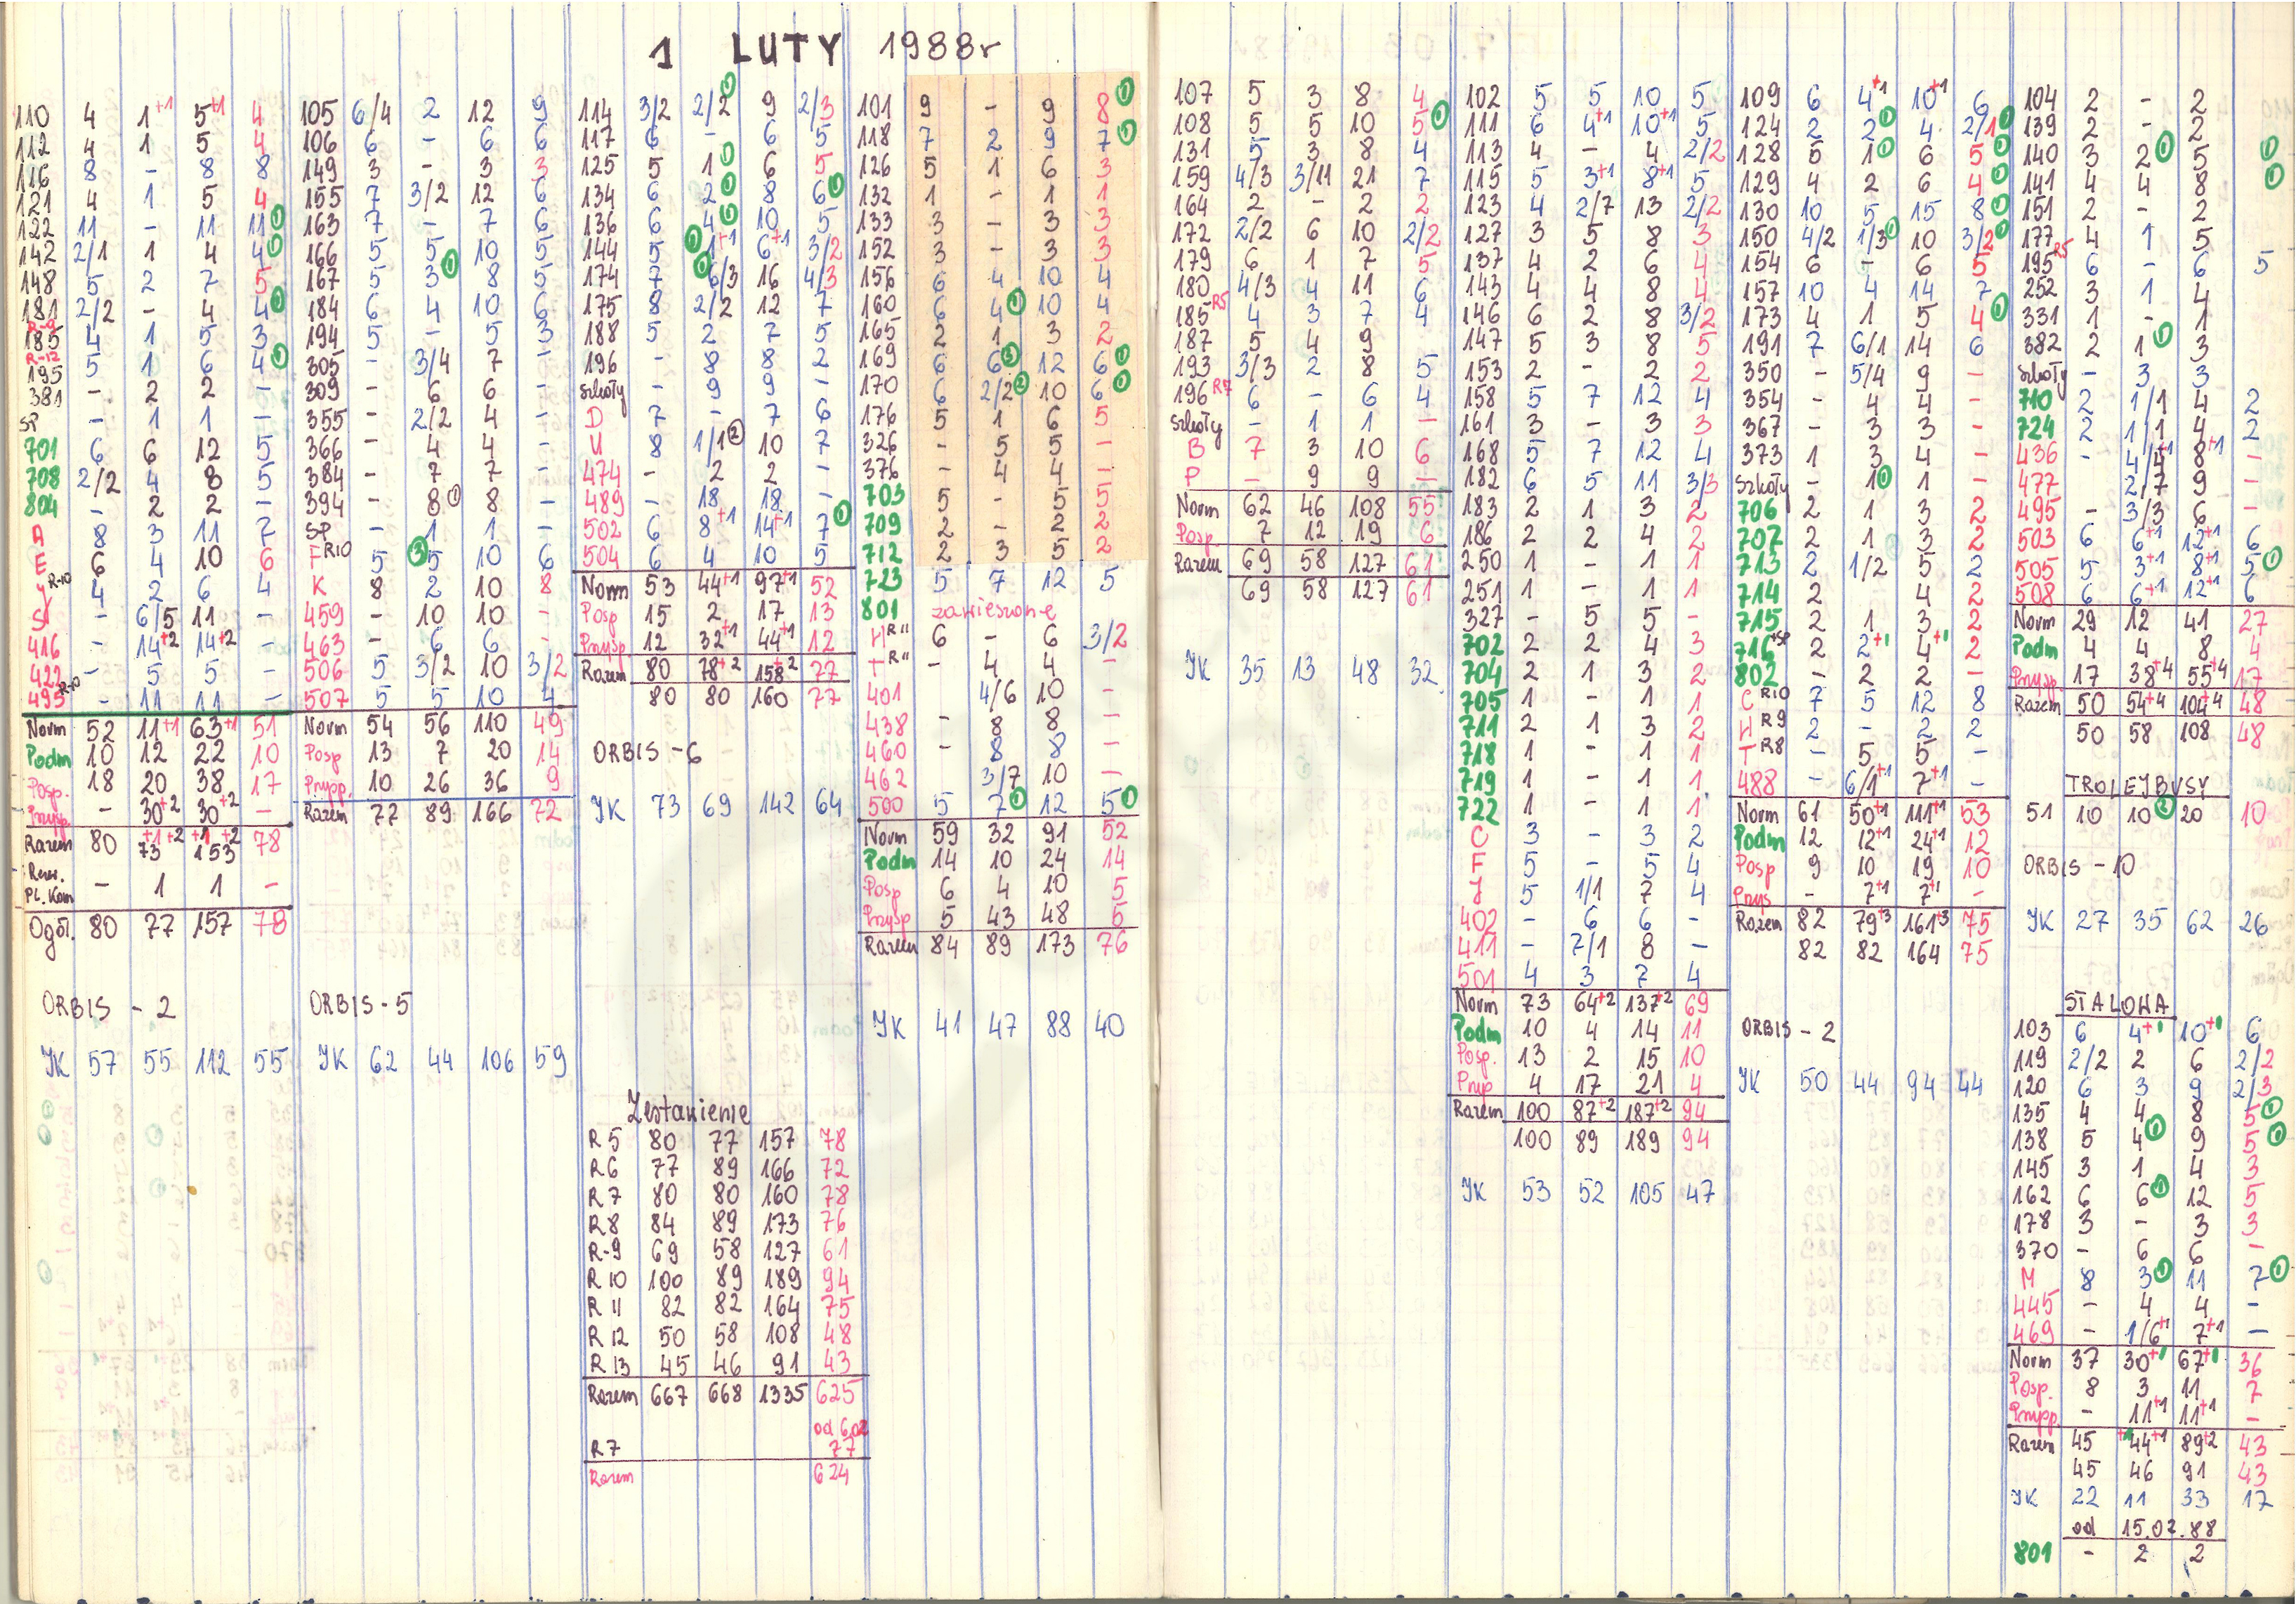 1 LUTY 1988r
110 4 1+1 5+1 4
112 4 1 5 4
116 8 - 8 8
121 4 1 5 4
122 11 - 11 11 ①
142 2/1 1 4 4 ①
148 5 2 7 5
181 2/2 - 4 4 ①
R-9 185 4 1 5 3
R-12 195 5 1 6 4 ①
381 - 2 2 -
SP - 1 1 -
701 6 6 12 5
708 2/2 4 8 5
804 - 2 2 -
A 8 3 11 7
E 6 4 10 6
R-10 4 2 6 4
S - 6/5 11 -
416 - 14+2 14+2 -
422 - 5 5 -
495 R-10 - 11 11 -
Norm 52 11+1 63+1 51
Podm 10 12 22 10
Posp. 18 20 38 17
Przysp. - 30+2 30+2 -
Razem 80 73+1+2 153+1+2 78
Rez.
PL. Kom - 1 1 -
Ogół. 80 77 157 78
ORBIS - 2
JK 57 55 112 55
105 6/4 2 12 9
106 6 - 6 6
149 3 - 3 3
155 7 3/2 12 6
163 7 - 7 6
166 5 5 10 5
167 5 3 ① 8 5
184 6 4 10 6
194 5 - 5 3
305 - 3/4 7 -
309 - 6 6 -
355 - 2/2 4 -
366 - 4 4 -
384 - 7 7 -
394 - 8 ① 8 -
SP - 1 1 -
F R10 5 ③ 5 10 6
K 8 2 10 8
459 - 10 10 -
463 - 6 6 -
506 5 3/2 10 3/2
507 5 5 10 4
Norm 54 56 110 49
Posp 13 7 20 14
Przysp. 10 26 36 9
Razem 77 89 166 72
ORBIS - 5
JK 62 44 106 59
114 3/2 2/2 ① 9 2/3
117 6 - 6 5
125 5 1 ① 6 5
134 6 2 ① 8 6 ①
136 6 4 ① 10 5
144 5 ① 1+1 6+1 3/2
174 7 ① 6/3 16 4/3
175 8 2/2 12 7
188 5 2 7 5
196 - 8 8 2
Szkoły - 9 9 -
D 7 - 7 6
U 8 1/1 ② 10 7
474 - 2 2 -
489 - 18 18 -
502 6 8+1 14+1 7 ①
504 6 4 10 5
Norm 53 44+1 97+1 52
Posp 15 2 17 13
Przysp. 12 32+1 44+1 12
Razem 80 78+2 158+2 77
80 80 160 77
ORBIS - 6
JK 73 69 142 64
Zestawienie
R5 80 77 157 78
R6 77 89 166 72
R7 80 80 160 78
R8 84 89 173 76
R-9 69 58 127 61
R10 100 89 189 94
R11 82 82 164 75
R12 50 58 108 48
R13 45 46 91 43
Razem 667 668 1335 625
od 6.02
R7 77
Razem 624
101 9 - 9 8 ①
118 7 2 9 7 ①
126 5 1 6 3
132 1 - 1 1
133 3 - 3 3
152 3 - 3 3
156 6 4 10 4
160 6 4 ① 10 4
165 2 1 3 2
169 6 6 ③ 12 6 ①
170 6 2/2 ② 10 6 ①
176 5 1 6 5
326 - 5 5 -
376 - 4 4 -
703 5 - 5 5
709 2 - 2 2
712 2 3 5 2
723 5 7 12 5
801 zawieszone
H R11 6 - 6 3/2
T R11 - 4 4 -
401 4/6 10 -
438 - 8 8 -
460 - 8 8 -
462 3/7 10 -
500 5 7 ① 12 5 ①
Norm 59 32 91 52
Podm 14 10 24 14
Posp 6 4 10 5
Przysp 5 43 48 5
Razem 84 89 173 76
JK 41 47 88 40
107 5 3 8 4
108 5 5 10 5 ①
131 5 3 8 4
159 4/3 3/11 21 7
164 2 - 2 2
172 2/2 6 10 2/2
179 6 1 7 5
180 4/3 4 11 6
185 R5 4 3 7 4
187 5 4 9
193 3/3 2 8 5
196 R7 6 - 6 4
Szkoły - 1 1 -
B 7 3 10 6
P - 9 9 -
Norm 62 46 108 55
Posp. 7 12 19 6
Razem 69 58 127 61
69 58 127 61
JK 35 13 48 32
102 5 5 10 5
111 6 4+1 10+1 5
113 4 - 4 2/2
115 5 3+1 8+1 5
123 4 2/7 13 2/2
127 3 5 8 3
137 4 2 6 4
143 4 4 8 4
146 6 2 8 3/2
147 5 3 8 5
153 2 - 2 2
158 5 7 12 4
161 3 - 3 3
168 5 7 12 4
182 6 5 11 3/3
183 2 1 3 2
186 2 2 4 2
250 1 - 1 1
251 1 - 1 1
327 - 5 5 -
702 2 2 4 3
704 2 1 3 2
705 1 - 1 1
711 2 1 3 2
718 1 - 1 1
719 1 - 1 1
722 1 - 1 1
C 3 - 3 2
F 5 - 5 4
J 5 1/1 7 4
402 - 6 6 -
411 - 7/1 8 -
501 4 3 7 4
Norm 73 64+2 137+2 69
Podm 10 4 14 11
Posp. 13 2 15 10
Przysp 4 17 21 4
Razem 100 87+2 187+2 94
100 89 189 94
JK 53 52 105 47
109 6 4+1 10+1 6
124 2 2 ① 4 2/1 ①
128 5 1 ① 6 5 ①
129 4 2 6 4 ①
130 10 5 15 8 ①
150 4/2 1/3 ① 10 3/2 ①
154 6 - 6 5
157 10 4 14 7
173 4 1 5 4 ①
191 7 6/1 14 6
350 - 5/4 9 -
354 - 4 4 -
367 - 3 3 -
373 1 3 4 -
Szkoły - 1 ① 1 -
706 2 1 3 2
707 2 1 3 2
713 2 1/2 5 2
714 2 4 2
715 2 1 3 2
716+SP 2 2+1 4+1 2
802 - 2 2 -
C R10 7 5 12 8
H R9 2 - 2 2
T R8 - 5 5 -
488 - 6/1+1 7+1 -
Norm 61 50+1 111+1 53
Podm 12 12+1 24+1 12
Posp 9 10 19 10
Przys - 7+1 7+1 -
Razem 82 79+3 161+3 75
82 82 164 75
ORBIS - 2
JK 50 44 94 44
104 2 - 2
139 2 - 2
140 3 2 ① 5 ①
141 4 4 8 ①
151 2 - 2
177 4 1 5
195 R5 6 - 6 5
252 3 1 4
331 1 - 1
382 2 1 ① 3
Szkoły - 3 3
710 2 1/1 4 2
724 2 1/1 4 2
436 - 4/4+1 8+1 -
477 2/7 9 -
495 - 3/3 6 -
503 6 6+1 12+1 6
505 5 3+1 8+1 5 ①
508 6 6+1 12+1 6
Norm 29 12 41 27
Podm 4 4 8 4
Przysp. 17 38+4 55+4 17
Razem 50 54+4 104+4 48
50 58 108 48
TROLEJBUSY
51 10 10 ② 20 10
ORBIS - 10
JK 27 35 62 26
STALOWA
103 6 4+1 10+1 6
119 2/2 2 6 2/2
120 6 3 9 2/3
135 4 4 8 5 ①
138 5 4 ① 9 5 ①
145 3 1 4 3
162 6 6 ① 12 5
178 3 - 3 3
370 - 6 6 -
M 8 3 ① 11 7 ①
445 - 4 4 -
469 - 1/6+1 7+1 -
Norm 37 30+1 67+1 36
Posp. 8 3 11 7
Przysp. - 11+1 11+1 -
Razem 45 +1 44+1 89+2 43
45 46 91 43
JK 22 11 33 17
od 15.02.88
801 - 2 2